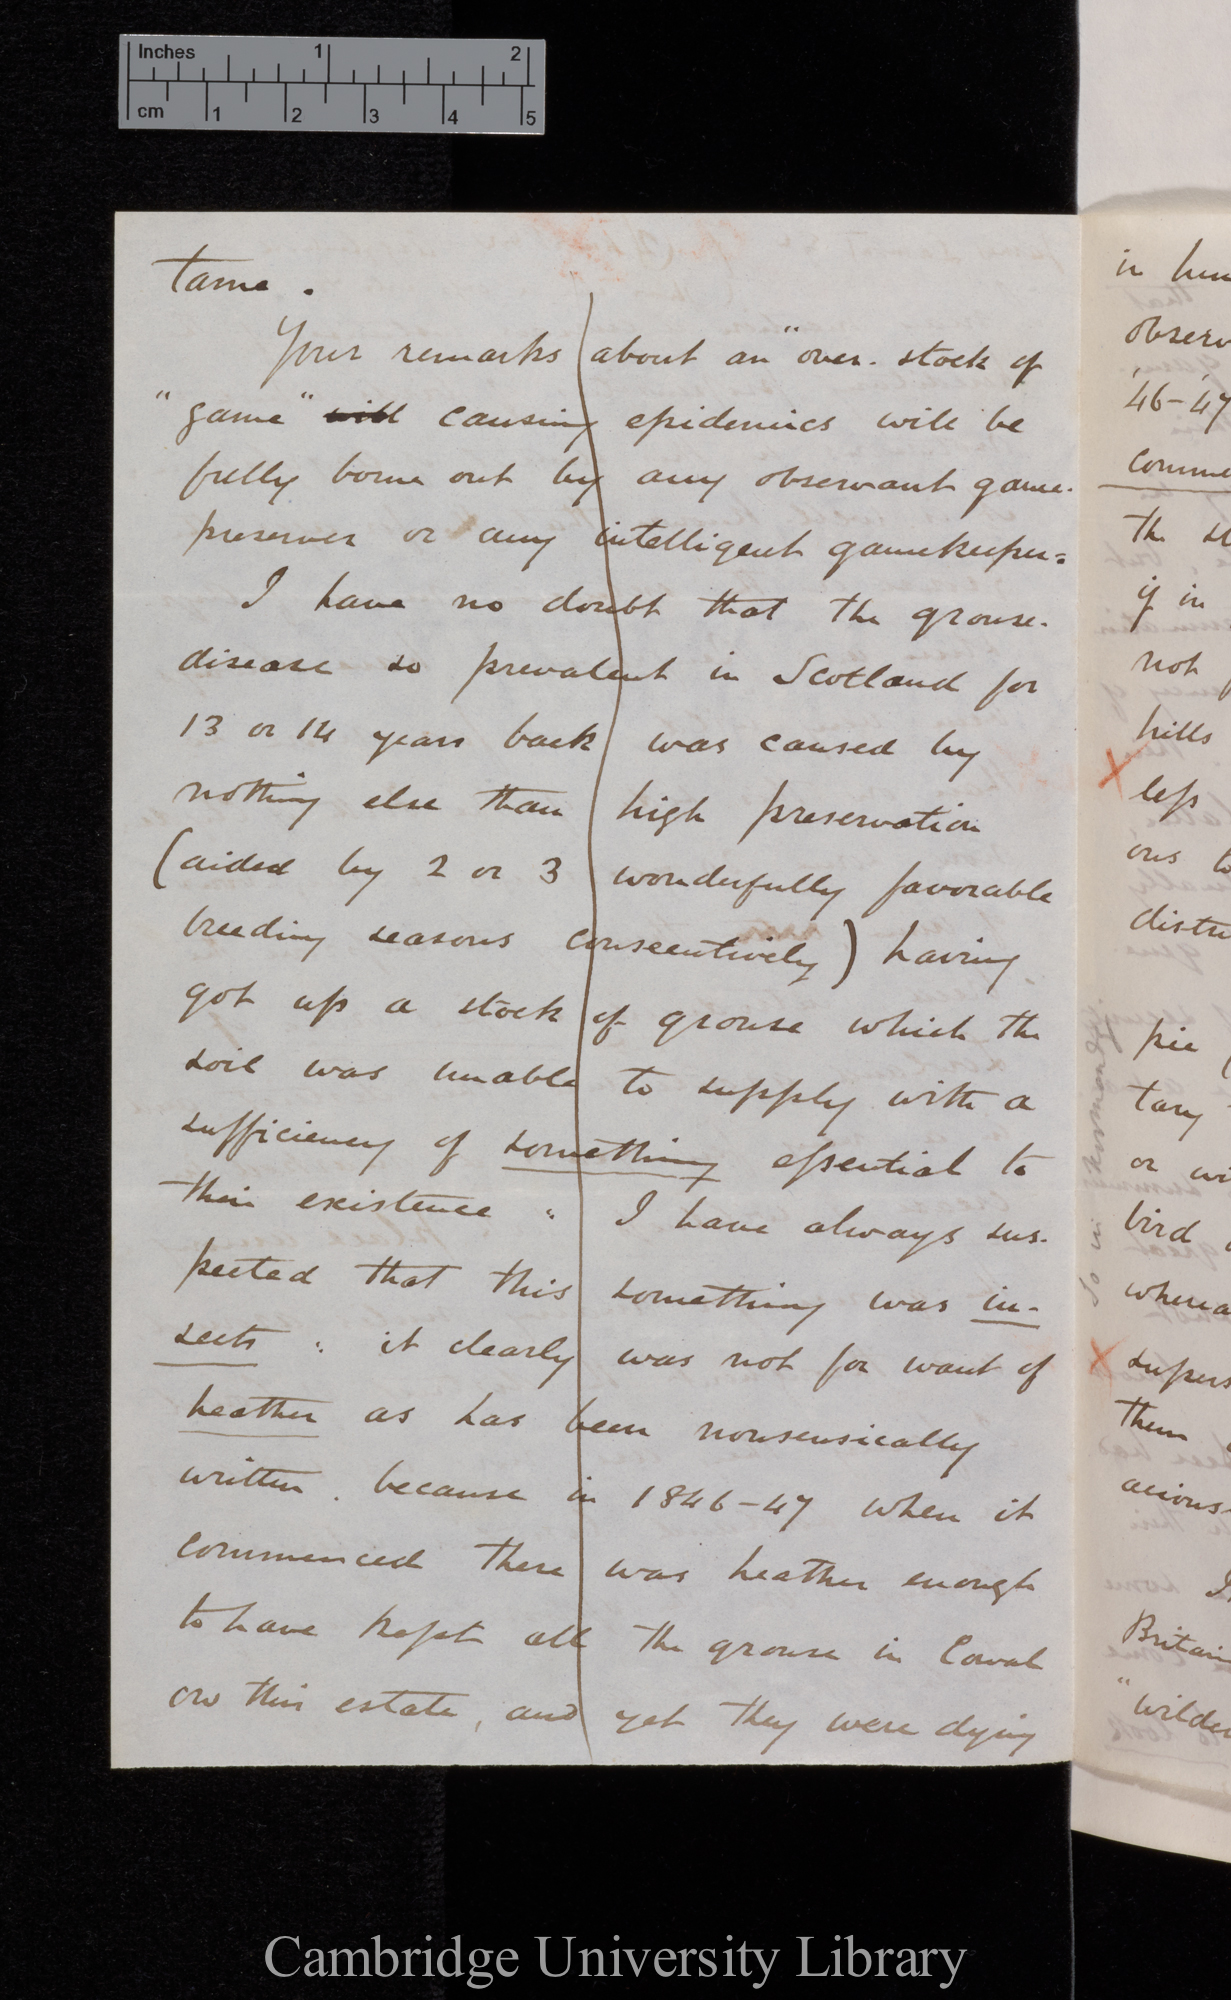 Inches 1 2
cm 1 2 3 4 5
tame.
Your remarks about an "over-stock of
"game" will causing epidemics will be
fully borne out by any observant game-
preserver or any intelligent gamekeeper:
I have no doubt that the grouse-
disease so prevalent in Scotland for
13 or 14 years back was caused by
nothing else than high preservation
(aided by 2 or 3 wonderfully favorable
breeding seasons consecutively) having
got up a stock of grouse which the
soil was unable to supply with a
sufficiency of something essential to
their existence: I have always sus-
pected that this something was in-
sects: it clearly was not for want of
heather as has been nonsensically
written. because in 1846–47 when it
commenced there was heather enough
to have kept all the grouse in Cowal
on this estate, and yet they were dying
in
observ
'46–47
comme
the
if in
not
hills
less
ous
distri
pie
tary
or wi
bird
wherea
supers
them
acious
Britain
"wilder
so in Normandy.
Cambridge University Library